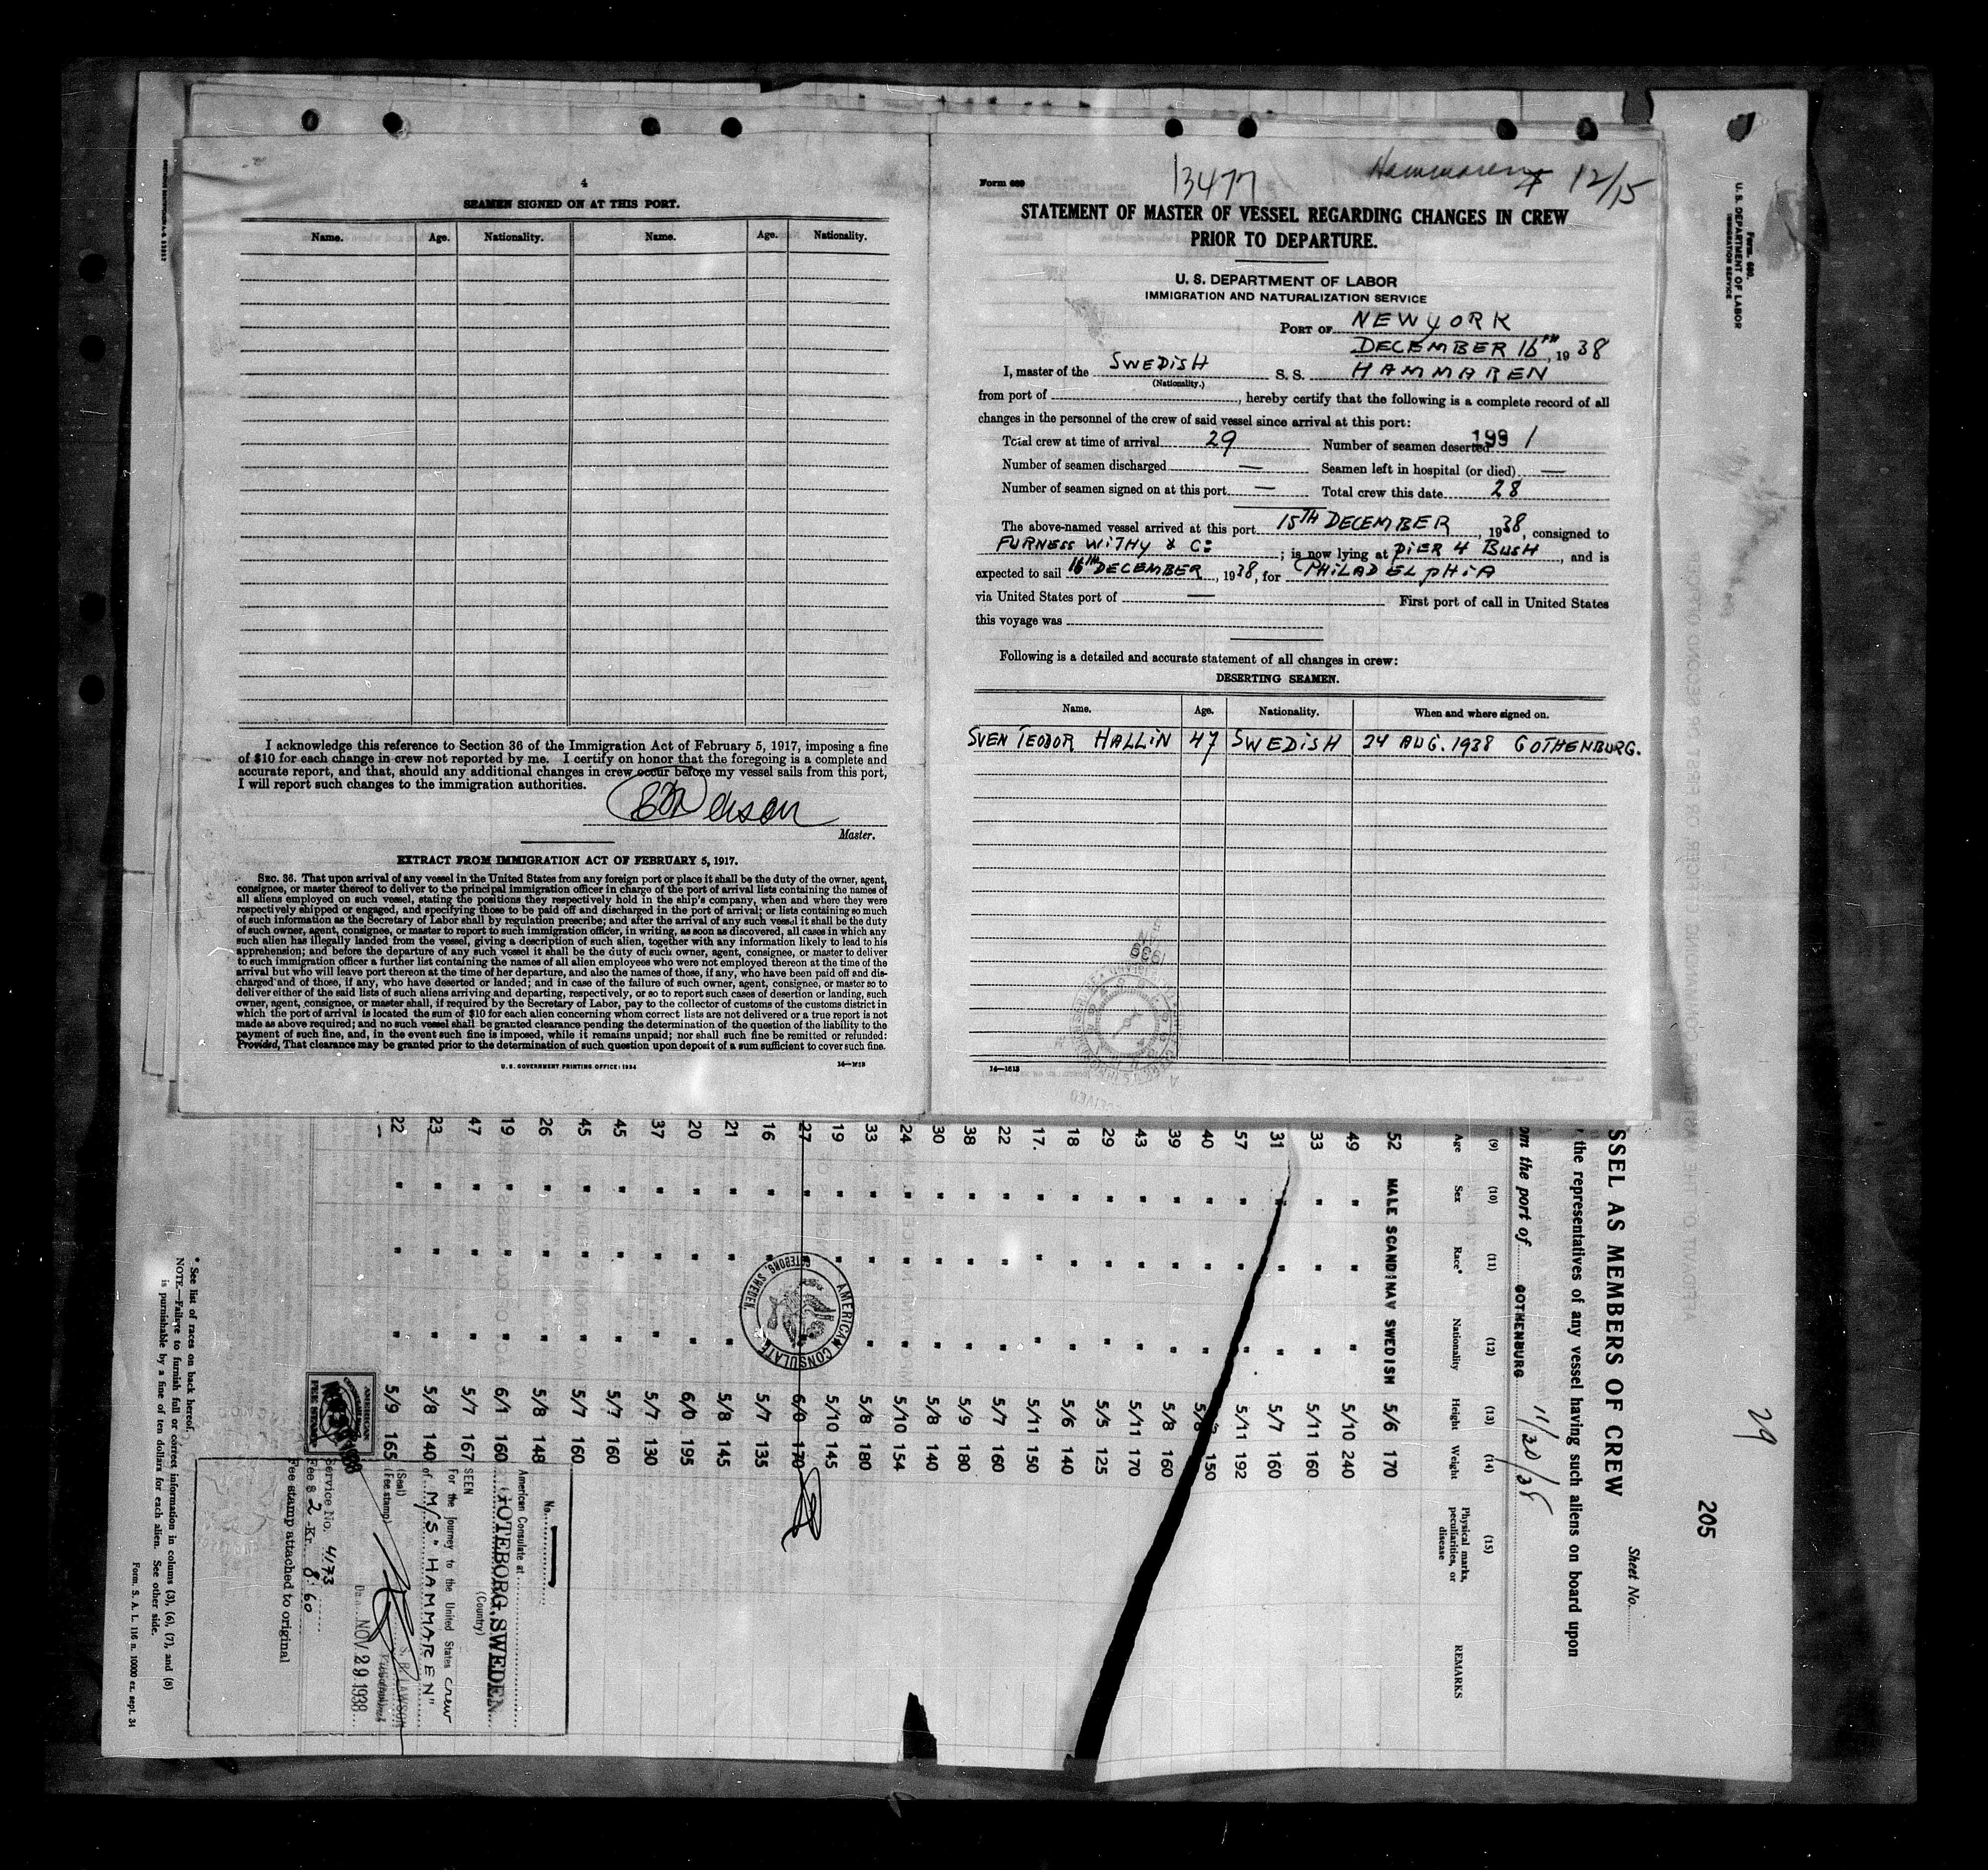 4
SEAMEN SIGNED ON AT THIS PORT.
Name. Age. Nationality. Name. Age. Nationality.
I acknowledge this reference to Section 36 of the Immigration Act of February 5, 1917, imposing a fine
of $10 for each change in crew not reported by me. I certify on honor that the foregoing is a complete and
accurate report, and that, should any additional changes in crew occur before my vessel sails from this port,
I will report such changes to the immigration authorities.
Master.
EXTRACT FROM IMMIGRATION ACT OF FEBRUARY 5, 1917.
SEC. 36. That upon arrival of any vessel in the United States from any foreign port or place it shall be the duty of the owner, agent,
consignee, or master thereof to deliver to the principal immigration officer in charge of the port of arrival lists containing the names of
all aliens employed on such vessel, stating the positions they respectively hold in the ship's company, when and where they were
respectively shipped or engaged, and specifying those to be paid off and discharged in the port of arrival; or lists containing so much
of such information as the Secretary of Labor shall by regulation prescribe; and after the arrival of any such vessel it shall be the duty
of such owner, agent, consignee, or master to report to such immigration officer, in writing, as soon as discovered, all cases in which any
such alien has illegally landed from the vessel, giving a description of such alien, together with any information likely to lead to his
apprehension; and before the departure of any such vessel it shall be the duty of such owner, agent, consignee, or master to deliver
to such immigration officer a further list containing the names of all alien employees who were not employed thereon at the time of the
arrival but who will leave port thereon at the time of her departure, and also the names of those, if any, who have been paid off and dis-
charged and of those, if any, who have deserted or landed; and in case of the failure of such owner, agent, consignee, or master so to
deliver either of the said lists of such aliens arriving and departing, respectively, or so to report such cases of desertion or landing, such
owner, agent, consignee, or master shall, if required by the Secretary of Labor, pay to the collector of customs of the customs district in
which the port of arrival is located the sum of $10 for each alien concerning whom correct lists are not delivered or a true report is not
made as above required; and no such vessel shall be granted clearance pending the determination of the question of the liability to the
payment of such fine, and, in the event such fine is imposed, while it remains unpaid; nor shall such fine be remitted or refunded:
Provided, That clearance may be granted prior to the determination of such question upon deposit of a sum sufficient to cover such fine.
U. S. GOVERNMENT PRINTING OFFICE: 1934
Form 689
13477
Hammaren 12/15
STATEMENT OF MASTER OF VESSEL REGARDING CHANGES IN CREW
PRIOR TO DEPARTURE.
U. S. DEPARTMENT OF LABOR
IMMIGRATION AND NATURALIZATION SERVICE
PORT OF NEW YORK
DECEMBER 16TH, 1938
I, master of the SWEDISH S. S. HAMMAREN
(Nationality.)
from port of , hereby certify that the following is a complete record of all
changes in the personnel of the crew of said vessel since arrival at this port:
Total crew at time of arrival 29 Number of seamen deserted 199 1
Number of seamen discharged — Seamen left in hospital (or died) —
Number of seamen signed on at this port — Total crew this date 28
The above-named vessel arrived at this port 15TH DECEMBER, 1938, consigned to
FURNESS WITHY & Co ; is now lying at PIER 4 BUSH, and is
expected to sail 16TH DECEMBER, 1938, for PHILADELPHIA
via United States port of — First port of call in United States
this voyage was
Following is a detailed and accurate statement of all changes in crew:
DESERTING SEAMEN.
Name. Age. Nationality. When and where signed on.
SVEN TEODOR HALLIN 47 SWEDISH 24 AUG. 1938 GOTHENBURG.
14—1613
Form 680.
U. S. DEPARTMENT OF LABOR
IMMIGRATION SERVICE
29
205
Sheet No.
SSEL AS MEMBERS OF CREW
the representatives of any vessel having such aliens on board upon
om the port of GOTHENBURG 11/30/38
(9) (10) (11) (12) (13) (14) (15)
Age Sex Race* Nationality Height Weight Physical marks, peculiarities, or disease REMARKS
52 MALE SCANDINAV SWEDISH 5/6 170
49 " " " 5/10 240
33 " " " 5/11 160
31 " " " 5/7 160
57 " " " 5/11 192
40 " " " 150
39 " " " 5/8 160
43 " " " 5/11 170
29 " " " 5/5 125
18 " " " 5/6 140
17. " " " 5/11 150
22 " " " 5/7 160
38 " " " 5/9 180
30 " " " 5/8 140
24 " " " 5/10 154
33 " " " 5/8 180
19 " " " 5/10 145
27 " " " 6/0 170
16 " " " 5/7 135
21 " " " 5/8 145
20 " " " 6/0 195
37 " " " 5/7 130
45 " " " 5/7 160
45 " " " 5/7 160
26 " " " 5/8 148
19 " " " 6/1 160
47 " " " 5/7 167
23 " " " 5/8 140
22 " " " 5/9 165
AMERICAN CONSULATE
GÖTEBORG, SWEDEN.
No.
American Consulate at
GOTEBORG, SWEDEN
(Country)
SEEN
For the journey to the United States crew
of M/S "HAMMAREN"
(Seal)
(Fee stamp)
S. R. LAWSON
Date NOV 29 1938
Service No. 4173
Fee $ 2 -Kr. 8:60
Fee stamp attached to original
AMERICAN
FEE STAMP
* See list of races on back hereof.
NOTE.—Failure to furnish full or correct information in colums (3), (6), (7), and (8)
is punishable by a fine of ten dollars for each alien. See other side.
Form. S. A. L. 116 n. 10000 ex. sept. 34